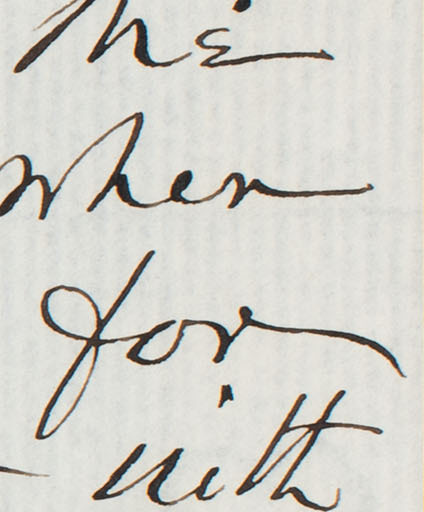 the
when
for
with